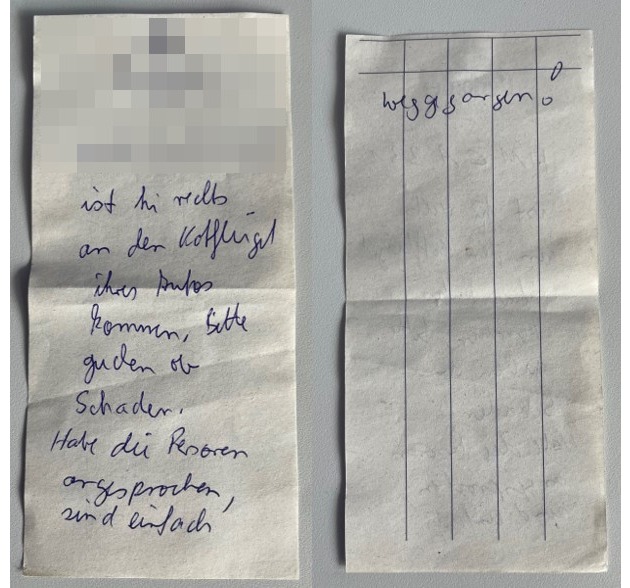 ist hi rechts
an den Kotflügel
ihres Autos
kommen, bitte
gucken ob
Schaden.
Habe die Personen
angesprochen,
sind einfach
weggegangen!